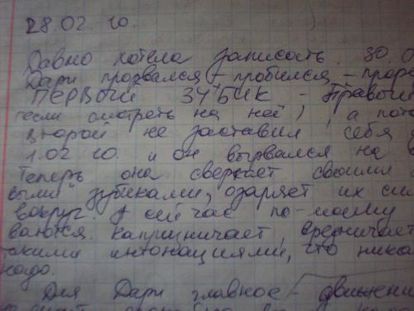 28.02.10.
Давно хотела записать. 30.0
Дари прорвался - пробился - прор
ПЕРВЫЙ ЗУБИК - правый
если смотреть на неё), а пото
второй не заставил себя
1.02.10. и он вырвался на в
Теперь она сверкает своими
выми зубиками, озаряет их си
вокруг. А сейчас по-моему
ваются. Капризничает, вредничает
такими интонациями, что ника
надо.
Для Дари главное - движени